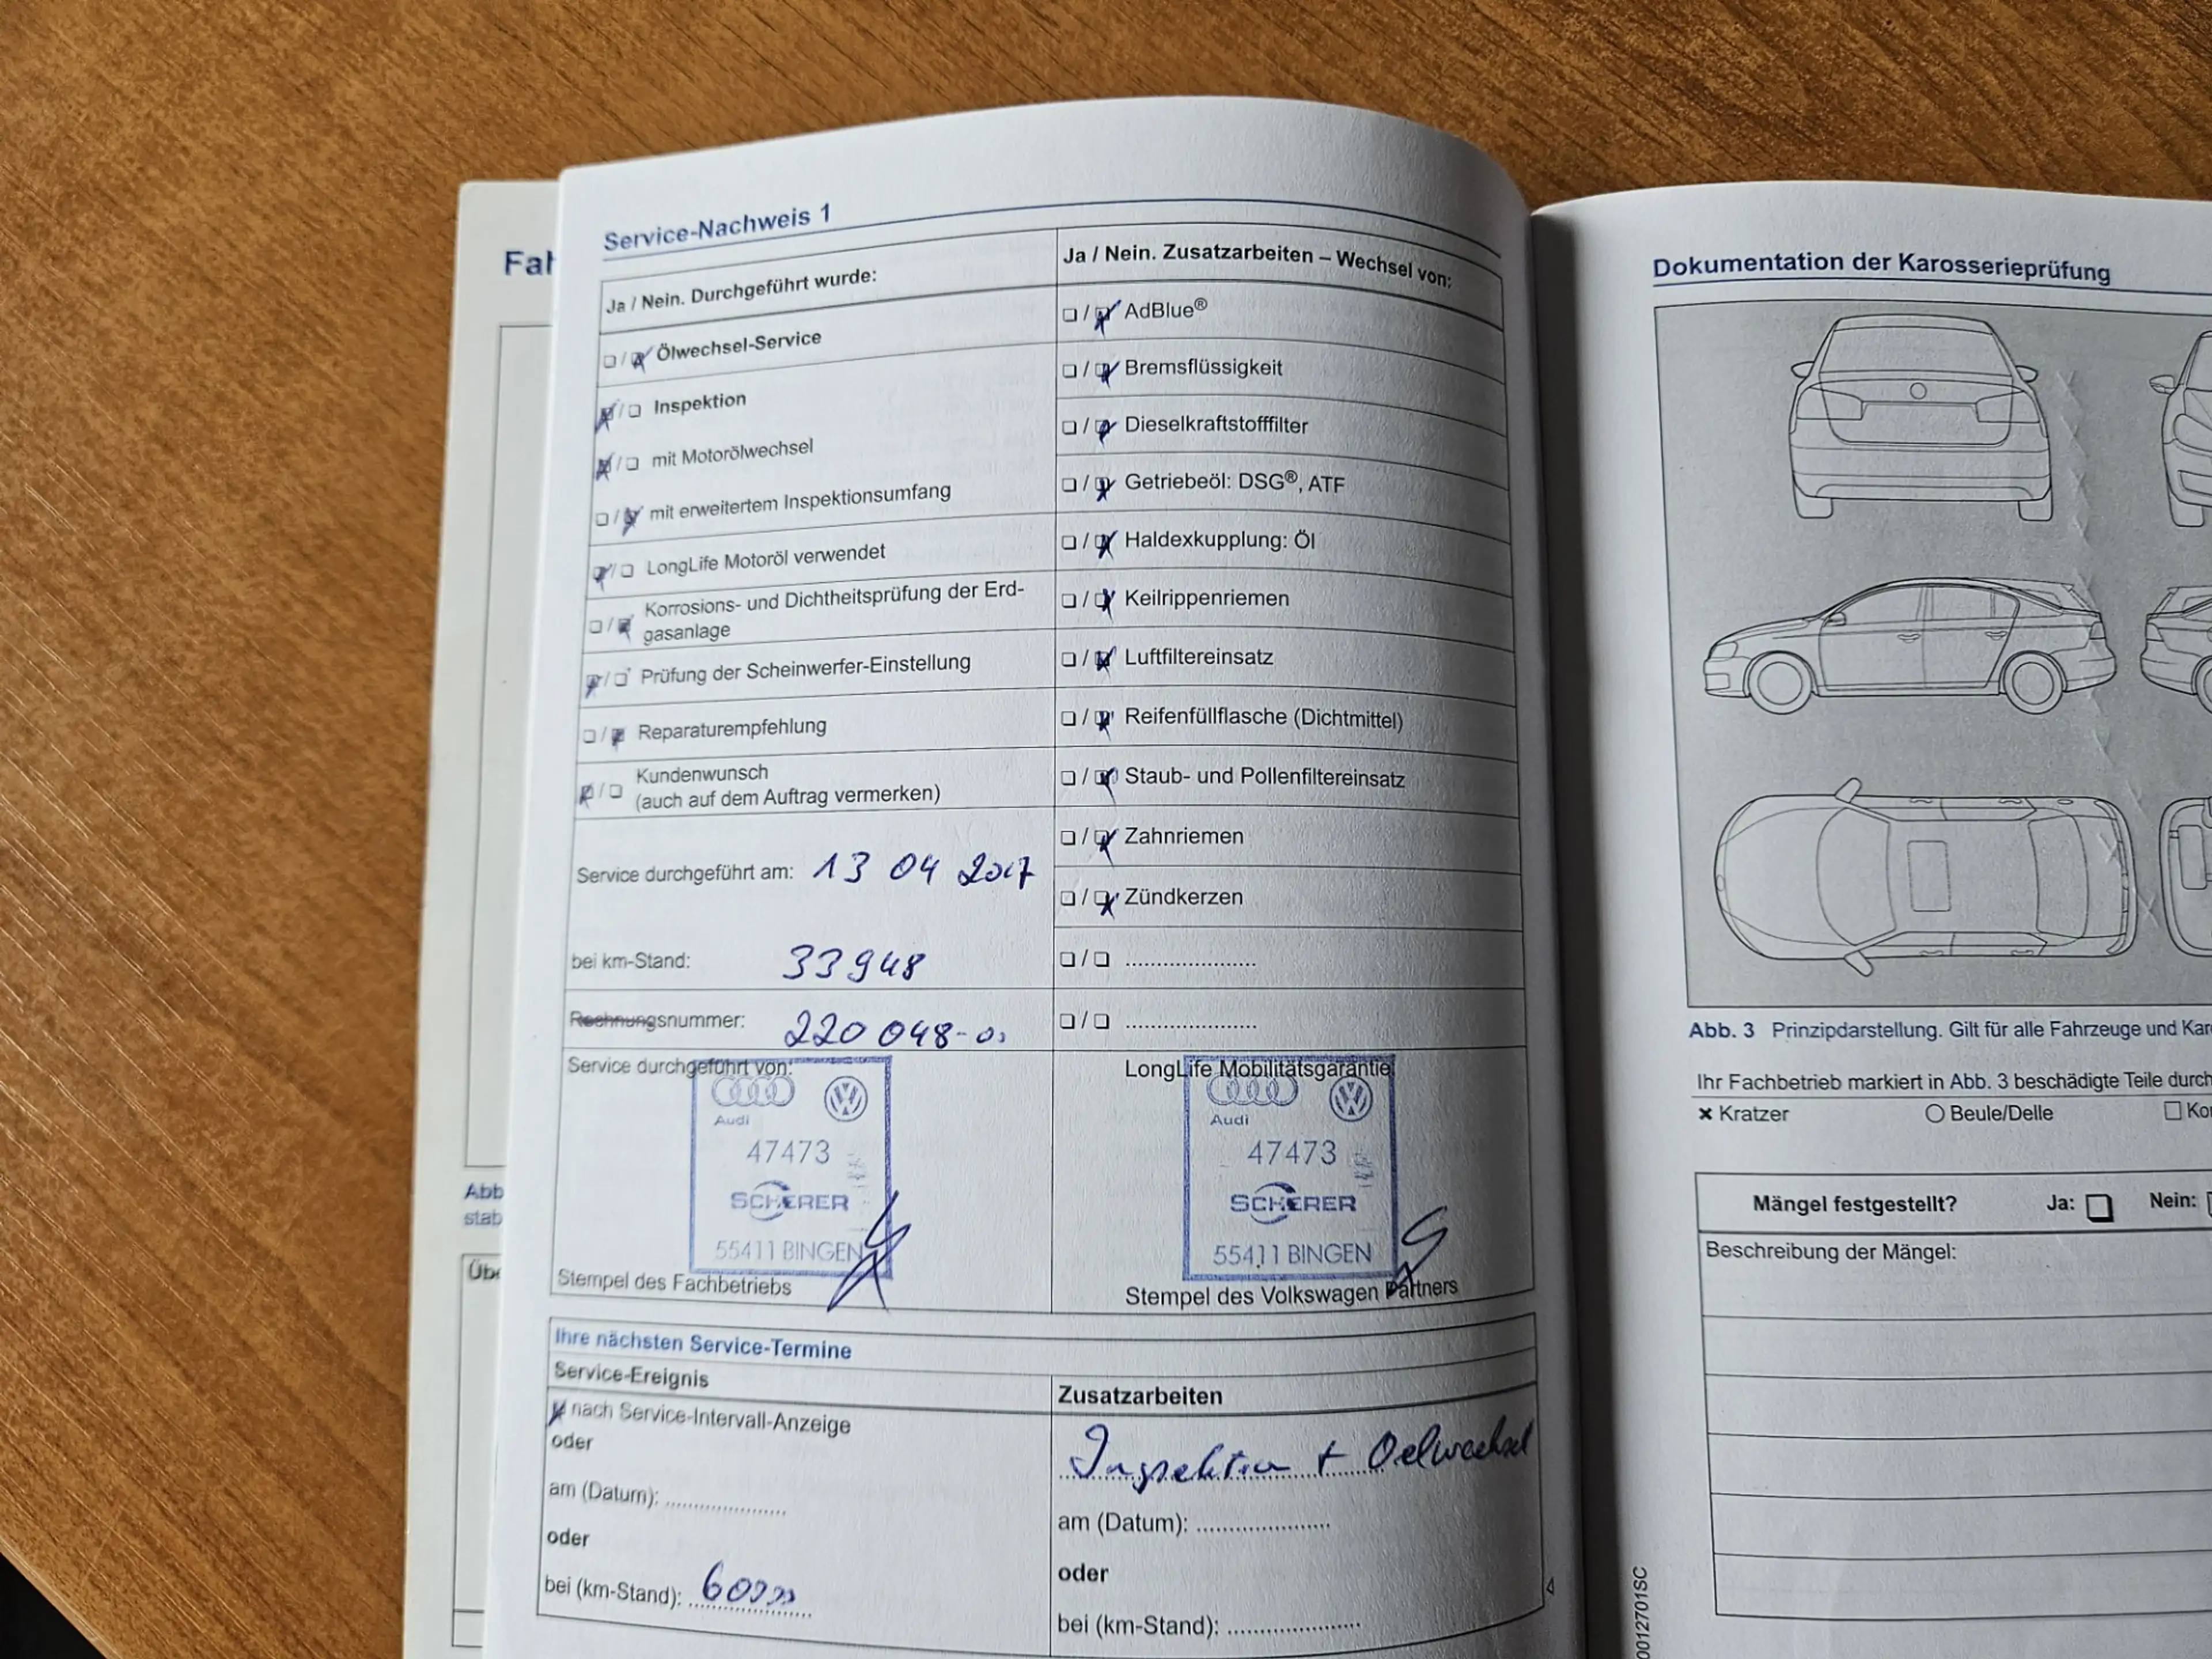 Fah
Abb
stab
Übe
Service-Nachweis 1
Ja / Nein. Durchgeführt wurde:
Ölwechsel-Service
Inspektion
mit Motorölwechsel
mit erweitertem Inspektionsumfang
LongLife Motoröl verwendet
Korrosions- und Dichtheitsprüfung der Erd-
gasanlage
Prüfung der Scheinwerfer-Einstellung
Reparaturempfehlung
Kundenwunsch
(auch auf dem Auftrag vermerken)
Service durchgeführt am: 13 04 2017
bei km-Stand: 33948
Rechnungsnummer: 220 048-
Service durchgeführt von:
Audi
47473
SCHERER
55411 BINGEN
Stempel des Fachbetriebs
Ja / Nein. Zusatzarbeiten – Wechsel von:
AdBlue®
Bremsflüssigkeit
Dieselkraftstofffilter
Getriebeöl: DSG®, ATF
Haldexkupplung: Öl
Keilrippenriemen
Luftfiltereinsatz
Reifenfüllflasche (Dichtmittel)
Staub- und Pollenfiltereinsatz
Zahnriemen
Zündkerzen
LongLife Mobilitätsgarantie
Audi
47473
SCHERER
55411 BINGEN
Stempel des Volkswagen Partners
Ihre nächsten Service-Termine
Service-Ereignis
nach Service-Intervall-Anzeige
oder
am (Datum):
oder
bei (km-Stand): 60000
Zusatzarbeiten
Inspektion + Oelwechsel
am (Datum):
oder
bei (km-Stand):
Dokumentation der Karosserieprüfung
Abb. 3 Prinzipdarstellung. Gilt für alle Fahrzeuge und Kar
Ihr Fachbetrieb markiert in Abb. 3 beschädigte Teile durch
× Kratzer ○ Beule/Delle □ Ko
Mängel festgestellt? Ja: Nein:
Beschreibung der Mängel:
0012701SC